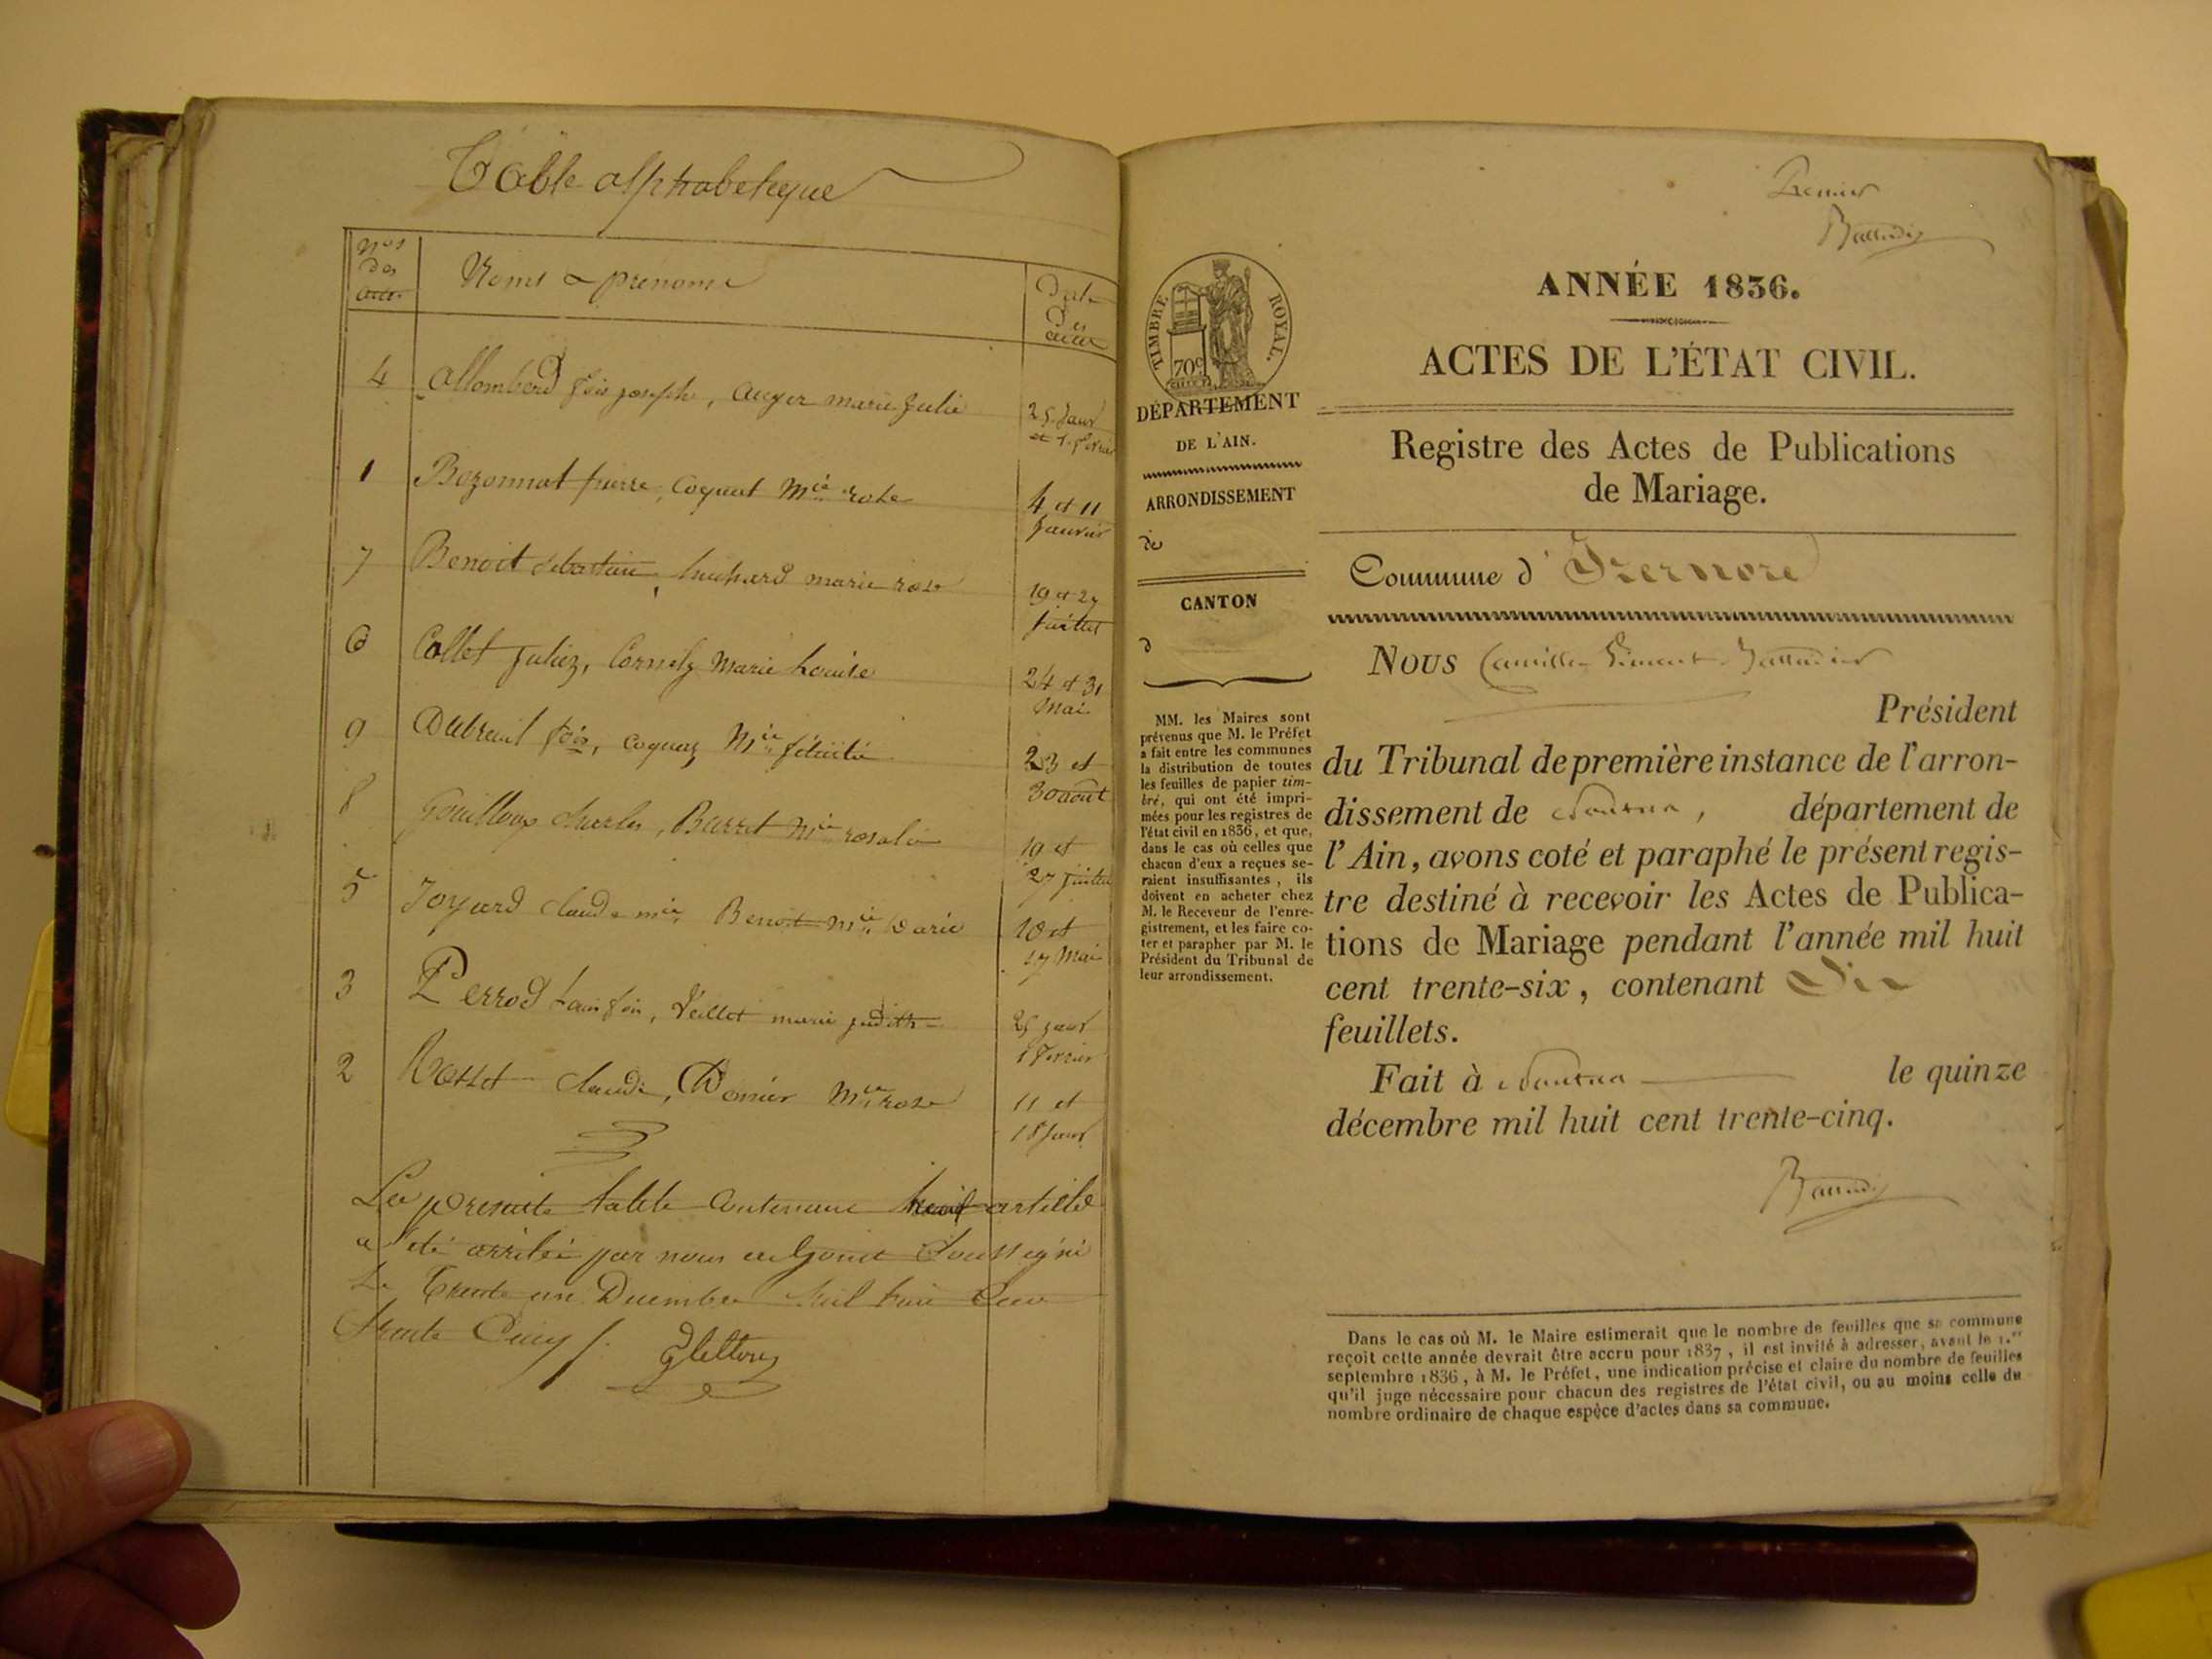 Table alphabetique
Nos des actes
Noms & prenoms
Date des actes
4 Allomberd fois joseph, Auger marie Julie 25 Janv et 1. fevrier
1 Bozonnat pierre, Coquet Mie rose 4 et 11 Janvier
7 Benoit sebastien, huchard marie rose 19 et 27 Juillet
6 Collet Julien, Cornely Marie Louise 24 et 31 Mai
9 Dubreuil fois, Coquaz Mie félicité 23 et 30 août
8 Gouilloux charles, Barret Mie rosalie 19 et 27 Juillet
5 Joyard claude mie, Benoit Mie Darie 10 et 17 Mai
3 Perrod Louis fois, Veillet marie judith 25 janv 1 fevrier
2 Rosset claude, Mie rose 11 et 18 Janv
La presente table contenant huit article
a été arrêtée par nous soussigné
Le Trente un Decembre Mil huit Cent
trente Cinq /.
Premier
ANNÉE 1836.
ACTES DE L'ÉTAT CIVIL.
Registre des Actes de Publications
de Mariage.
TIMBRE ROYAL.
70c
DÉPARTEMENT
DE L'AIN.
ARRONDISSEMENT
de
CANTON
d
MM. les Maires sont
prévenus que M. le Préfet
a fait entre les communes
la distribution de toutes
les feuilles de papier tim-
bré, qui ont été impri-
mées pour les registres de
l'état civil en 1836, et que,
dans le cas où celles que
chacun d'eux a reçues se-
raient insuffisantes, ils
doivent en acheter chez
M. le Receveur de l'enre-
gistrement, et les faire co-
ter et parapher par M. le
Président du Tribunal de
leur arrondissement.
Commune d' Izernore
Nous Camille
Président
du Tribunal de première instance de l'arron-
dissement de Nantua, département de
l'Ain, avons coté et paraphé le présent regis-
tre destiné à recevoir les Actes de Publica-
tions de Mariage pendant l'année mil huit
cent trente-six, contenant Dix
feuillets.
Fait à Nantua le quinze
décembre mil huit cent trente-cinq.
Dans le cas où M. le Maire estimerait que le nombre de feuilles que sa commune
reçoit cette année devrait être accru pour 1837, il est invité à adresser, avant le 1.er
septembre 1836, à M. le Préfet, une indication précise et claire du nombre de feuilles
qu'il juge nécessaire pour chacun des registres de l'état civil, ou au moins celle du
nombre ordinaire de chaque espèce d'actes dans sa commune.